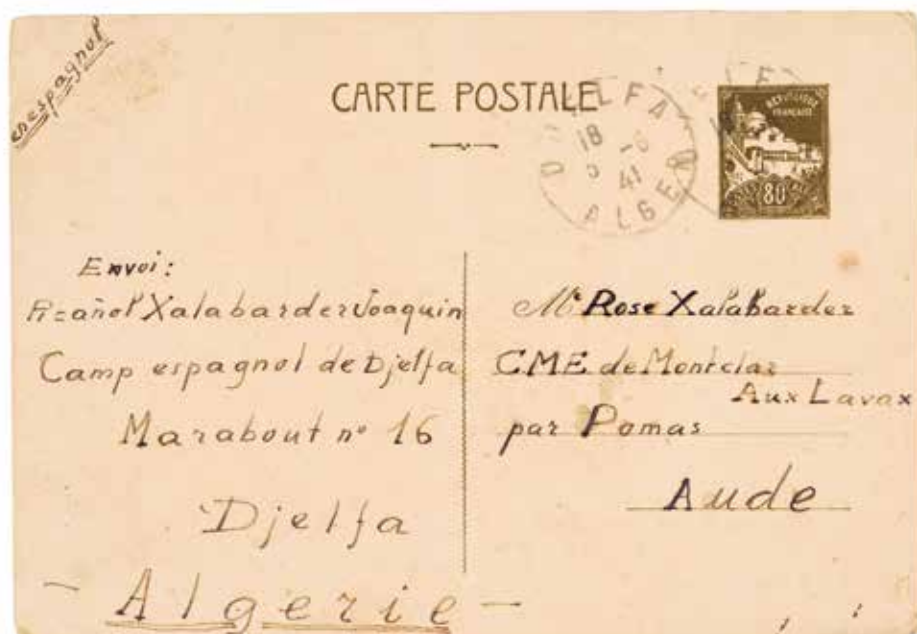 en espagnol
CARTE POSTALE
DJELFA
18
41
ALGER
REPUBLIQUE
FRANÇAISE
80
Envoi:
Xalabarder Joaquin
Camp espagnol de Djelfa
Marabout nº 16
Djelfa
- Algerie -
Rose Xalabarder
CME de Montclar
Aux Lavax
par Pomas
Aude